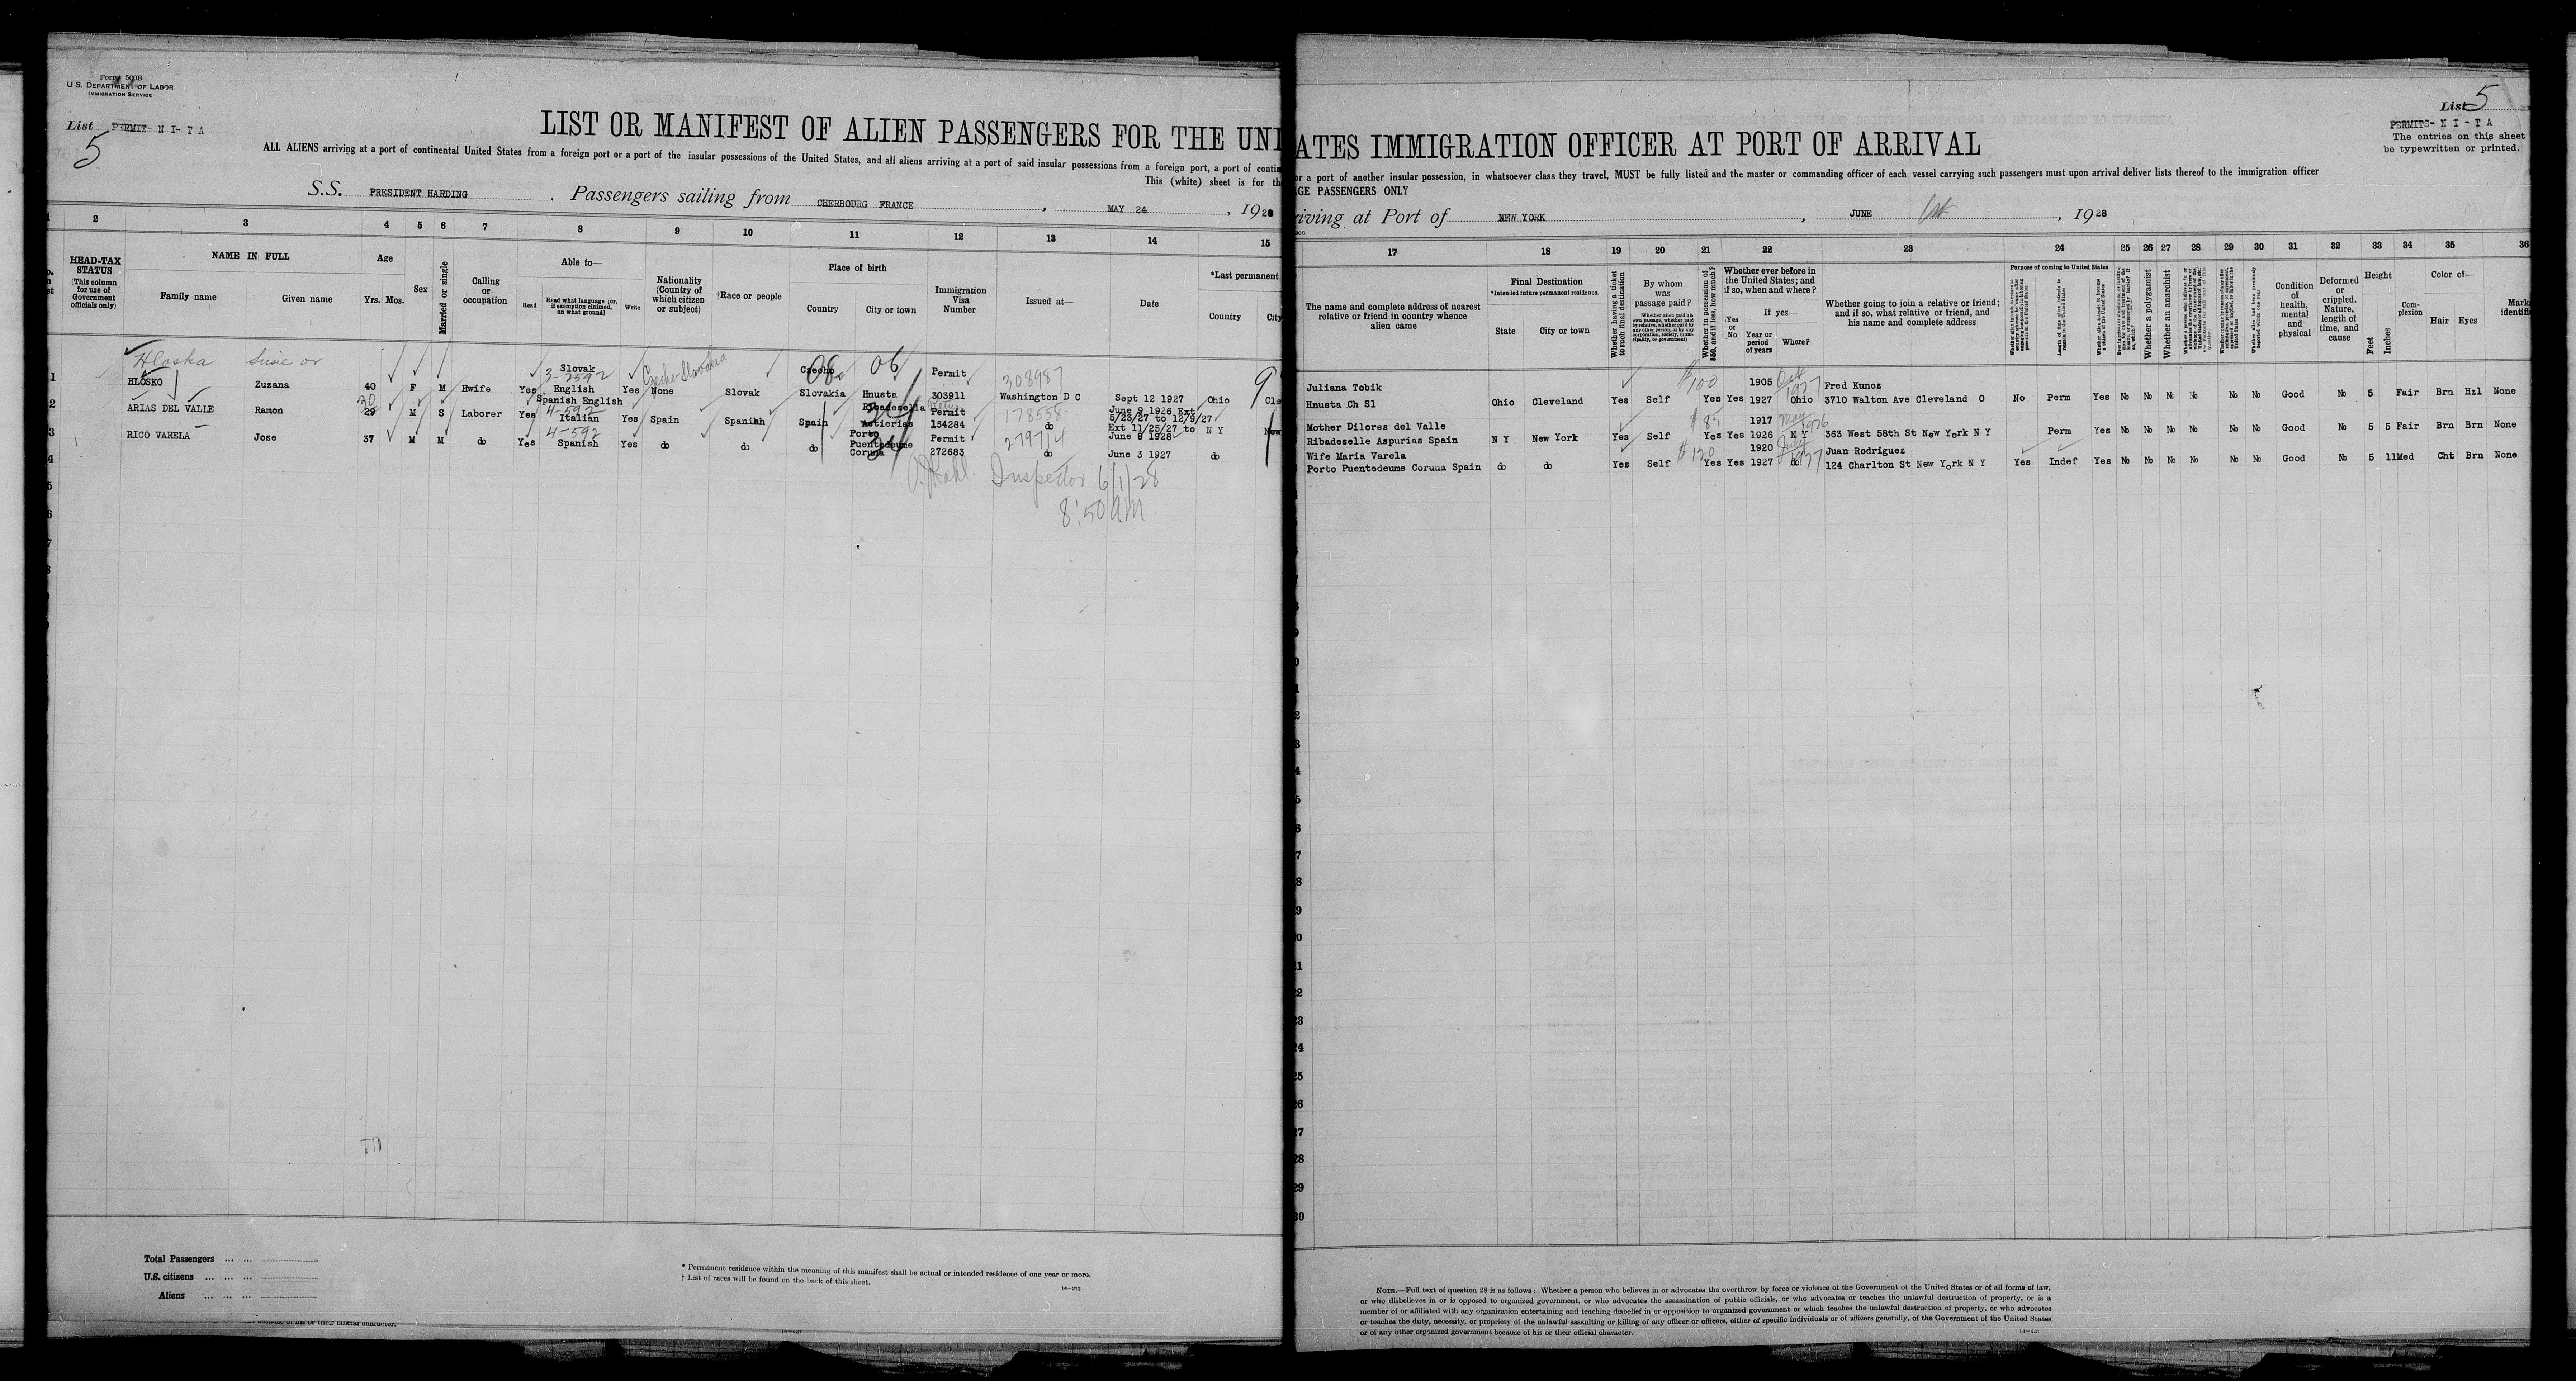 Form 500B
U. S. DEPARTMENT OF LABOR
IMMIGRATION SERVICE
List PERMIT- N I- T A
5
LIST OR MANIFEST OF ALIEN PASSENGERS FOR THE UNI
ALL ALIENS arriving at a port of continental United States from a foreign port or a port of the insular possessions of the United States, and all aliens arriving at a port of said insular possessions from a foreign port, a port of contin
This (white) sheet is for th
S.S. PRESIDENT HARDING . Passengers sailing from CHERBOURG FRANCE , MAY 24 , 1928
2 3 4 5 6 7 8 9 10 11 12 13 14 15
HEAD-TAX STATUS (This column for use of Government officials only)
NAME IN FULL
Family name Given name
Age
Yrs. Mos.
Sex
Married or single
Calling or occupation
Able to—
Read Read what language (or, if exemption claimed, on what ground) Write
Nationality (Country of which citizen or subject)
†Race or people
Place of birth
Country City or town
Immigration Visa Number
Issued at—
Date
*Last permanent
Country City
Hloska Susie or
1 HLOSKO Zuzana 40 F M Hwife Yes Slovak 3-2592 English Yes None Czecho Slovakia Slovak Czecho Slovakia Hnusta 06 Permit 303911 308987 Washington D C Sept 12 1927 Ohio Cle
9
2 ARIAS DEL VALLE Ramon 30 29 M S Laborer Yes Spanish English 4-592 Italian Yes Spain Spanish Spain Ribadesella Astierias Permit 154284 178558 do June 9 1926 Ext 5/23/27 to 12/9/27 Ext 11/25/27 to June 9 1928 N Y New
3 RICO VARELA Jose 37 M M do Yes 4-592 Spanish Yes do do do Porto Puentedeume Coruna Permit 272683 279714 do June 3 1927 do
4
Inspector 6/1/28
8:50 AM
5
6
7
Total Passengers
U.S. citizens
Aliens
* Permanent residence within the meaning of this manifest shall be actual or intended residence of one year or more.
† List of races will be found on the back of this sheet.
14—212
List 5
PERMITS- N I - T A
The entries on this sheet
be typewritten or printed.
ATES IMMIGRATION OFFICER AT PORT OF ARRIVAL
or a port of another insular possession, in whatsoever class they travel, MUST be fully listed and the master or commanding officer of each vessel carrying such passengers must upon arrival deliver lists thereof to the immigration officer
GE PASSENGERS ONLY
riving at Port of NEW YORK , JUNE 1st , 1928
17 18 19 20 21 22 23 24 25 26 27 28 29 30 31 32 33 34 35 36
The name and complete address of nearest relative or friend in country whence alien came
Final Destination
*Intended future permanent residence.
State City or town
Whether having a ticket to such final destination
By whom was passage paid?
Whether in possession of $50, and if less, how much?
Whether ever before in the United States; and if so, when and where?
Yes or No
If yes—
Year or period of years Where?
Whether going to join a relative or friend; and if so, what relative or friend, and his name and complete address
Purpose of coming to United States
Whether a polygamist
Whether an anarchist
Condition of health, mental and physical
Deformed or crippled. Nature, length of time, and cause
Height
Feet Inches
Complexion
Color of—
Hair Eyes
Mark identific
Juliana Tobik $100 1905 Oct 1927 Fred Kunoz
Hnusta Ch Sl Ohio Cleveland Yes Self Yes Yes 1927 Ohio 3710 Walton Ave Cleveland O No Perm Yes No No No No No No Good No 5 Fair Brn Hzl None
Mother Dilores del Valle $85 1917 May 1926
Ribadeselle Aspurias Spain N Y New York Yes Self Yes Yes 1926 N Y 363 West 58th St New York N Y Perm Yes No No No No No No Good No 5 5 Fair Brn Brn None
Wife Maria Varela $120 1920 July 1927 Juan Rodriguez
Porto Puentedeume Coruna Spain do do Yes Self Yes Yes 1927 do 124 Charlton St New York N Y Yes Indef Yes No No No No No No Good No 5 11 Med Cht Brn None
NOTE.—Full text of question 28 is as follows: Whether a person who believes in or advocates the overthrow by force or violence of the Government of the United States or of all forms of law,
or who disbelieves in or is opposed to organized government, or who advocates the assassination of public officials, or who advocates or teaches the unlawful destruction of property, or is a
member of or affiliated with any organization entertaining and teaching disbelief in or opposition to organized government or which teaches the unlawful destruction of property, or who advocates
or teaches the duty, necessity, or propriety of the unlawful assaulting or killing of any officer or officers, either of specific individuals or of officers generally, of the Government of the United States
or of any other organized government because of his or their official character.
14—421